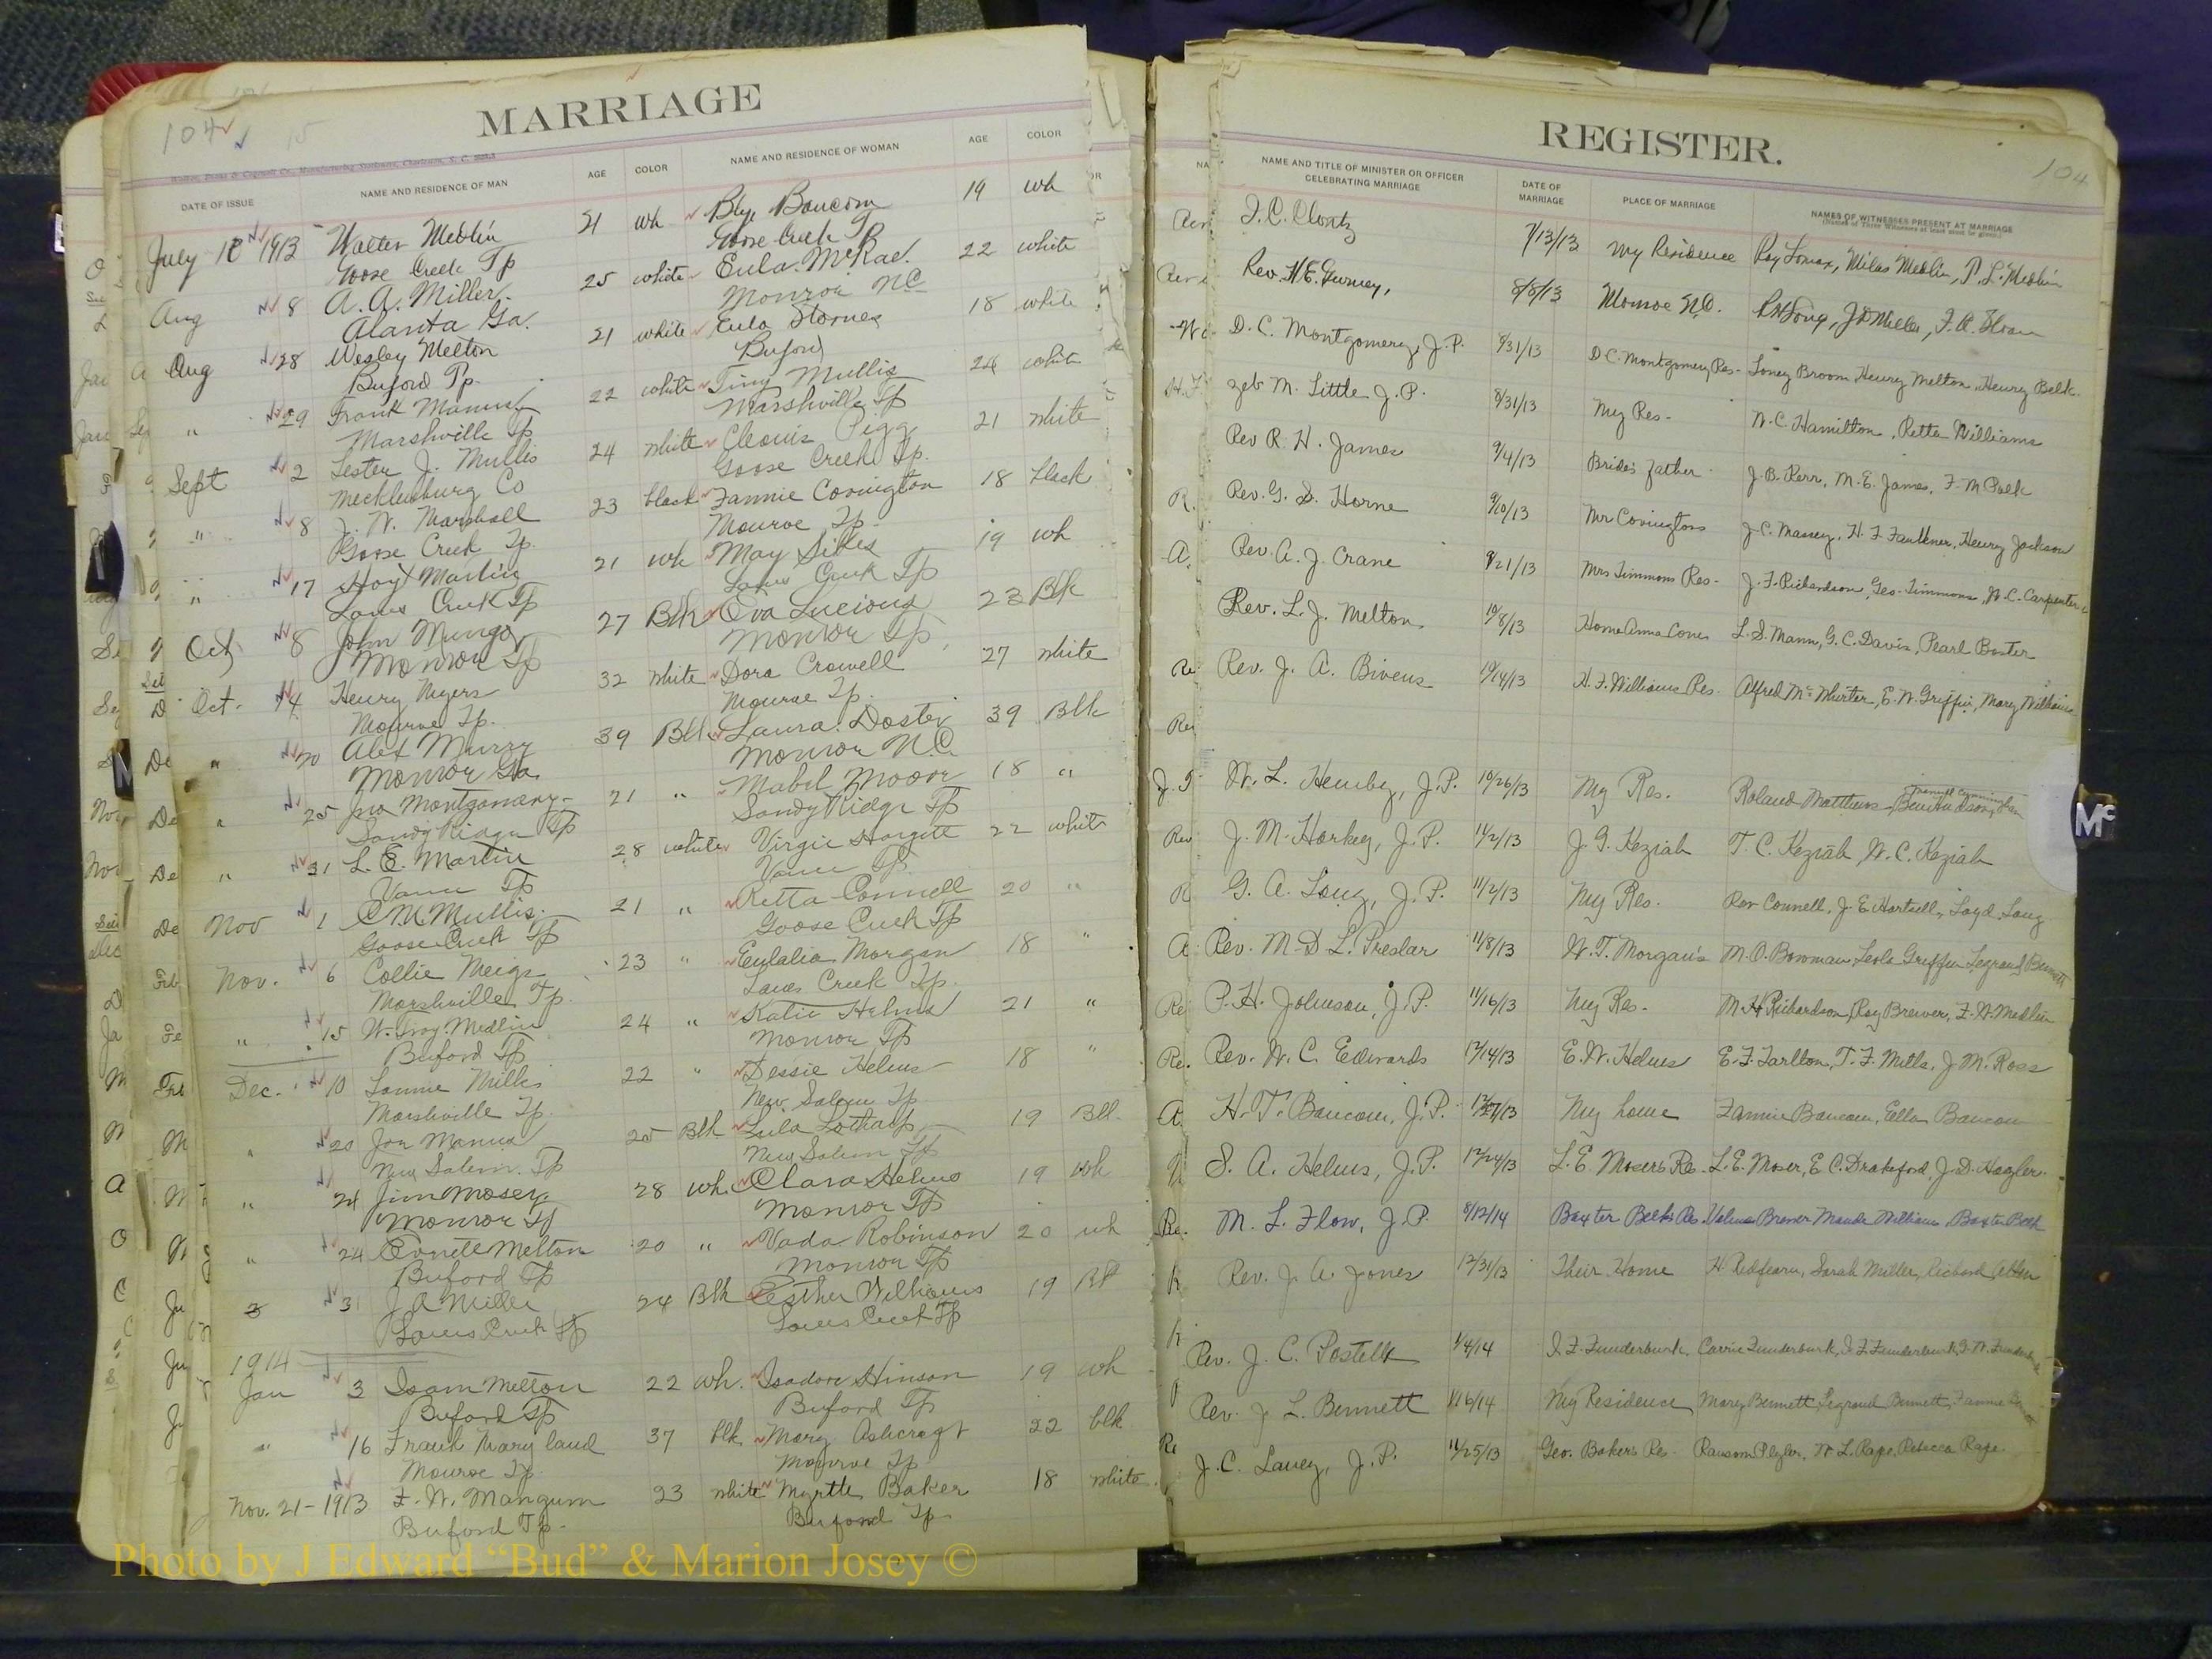 MARRIAGE
104
DATE OF ISSUE NAME AND RESIDENCE OF MAN AGE COLOR NAME AND RESIDENCE OF WOMAN AGE COLOR
July 12 1913 Walter Medlin 21 wh Blye Baucom 19 wh
Goose Creek Tp Goose Creek Tp
Aug 8 A. A. Miller 25 white Eula McRae 22 white
Alanta Ga. Monroe NC
Aug 28 Wesley Melton 21 white Eula Starnes 18 white
Buford Tp. Buford
" 29 Frank Manus 22 white Tiny Mullis 24 white
Marshville Tp Marshville Tp
Sept 2 Lester J. Mullis 24 white Cleouis Pigg 21 white
Mecklenburg Co Goose Creek Tp.
" 8 J. W. Marshall 23 black Fannie Covington 18 black
Goose Creek Tp. Monroe Tp.
" 17 Hoyt Martin 21 wh May Sikes 19 wh
Lanes Creek Tp Lanes Creek Tp
Oct 8 John Mungo 27 Blk Eva Lucious 22 Blk
Monroe Tp Monroe Tp
Oct. 14 Henry Myers 32 white Dora Crowell 27 white
Monroe Tp. Monroe Tp.
" 20 Alex Murry 39 Blk Laura Doster 39 Blk
Monroe Monroe N.C.
" 25 Jno Montgomery 21 " Mabel Moore 18 "
Sandy Ridge Tp Sandy Ridge Tp
" 31 L. E. Martin 28 white Virgie Hargett 22 white
Vance Tp Vance Tp.
Nov 1 C. M. Mullis 21 " Retta Connell 20 "
Goose Creek Tp Goose Creek Tp
Nov. 6 Collie Meigs 23 " Eulalia Morgan 18 "
Marshville Tp. Lanes Creek Tp.
" 15 W. Troy Medlin 24 " Katie Helms 21 "
Buford Tp Monroe Tp
Dec. 10 Lonnie Mills 22 " Dessie Helms 18 "
Marshville Tp. New Salem Tp.
" 20 Joe Manus 25 Blk Lula Lotharp 19 Bll.
New Salem Tp New Salem Tp
" 24 Jim Moser 28 wh. Clara Helms 19 wh
Monroe Tp Monroe Tp
" 24 Melton 20 " Vada Robinson 20 wh
Buford Tp Monroe Tp
31 J A Miller 24 Blk Esther Williams 19 Bl
Lanes Creek Tp Lanes Creek Tp
1914
Jan 3 Isom Melton 22 wh. Isadore Hinson 19 wh
Buford Tp Buford Tp
" 16 Frank Maryland 37 blk Mary Ashcraft 22 blk
Monroe Tp Monroe Tp
Nov. 21-1913 F. W. Mangum 23 white Myrtle Baker 18 white
Buford Tp. Buford Tp.
REGISTER.
104
NAME AND TITLE OF MINISTER OR OFFICER CELEBRATING MARRIAGE DATE OF MARRIAGE PLACE OF MARRIAGE NAMES OF WITNESSES PRESENT AT MARRIAGE
J. C. Clontz 7/13/13 My Residence Roy Lomax, Milas Medlin, P. L. Medlin
Rev. H. E. Gurney, 8/8/13 Monroe N.C. R H Long, J D Miller, F. A. Sloan
D. C. Montgomery, J. P. 8/31/13 D C. Montgomery Res- Loney Broom Henry Melton, Henry Belk
Zeb M. Little J. P. 8/31/13 My Res- W. C. Hamilton, Retta Williams
Rev R. H. James 9/4/13 Brides Father J. B. Kerr, M. E. James, F. M Polk
Rev. G. D. Horne 9/10/13 Mr Covingtons J. C. Massey, H. F. Faulkner, Henry Jackson
Rev. A. J. Crane 9/21/13 Mrs Timmons Res- J. F. Richardson, Geo. Timmons, W. C. Carpenter
Rev. L. J. Melton 10/8/13 Home Anna Cones L. S. Mann, G. C. Davis, Pearl Baxter
Rev. J. A. Bivens 10/14/13 H. F. Williams Res. Alfred McWhirter, E. W. Griffin, Mary Williams
W. L. Hemby, J. P. 10/26/13 My Res. Roland Matthews,
J. M. Harkey, J. P. 11/2/13 J. G. Keziah T. C. Keziah, W. C. Keziah
G. A. Long, J. P. 11/2/13 My Res. Rev Connell, J. E Hartsell, Loyd Long
Rev. M. D. L. Preslar 11/8/13 W. T. Morgan's M. O. Bowman, Leola Griffin Legrand Bennett
P. H. Johnson, J. P. 11/16/13 My Res- M. H Richardson, Roy Brewer, F. W. Medlin
Rev. W. C. Edwards 12/14/13 E. W. Helms E. F. Tarlton, T. F. Mills, J. M. Ross
H. T. Baucom, J. P. 12/27/13 My home Fannie Baucom, Ella Baucom
S. A. Helms, J. P. 12/24/13 L. E Moser's Res- L. E. Moser, E C. Drakeford, J. D. Hagler
M. L. Flow, J. P. 8/12/14 Baxter Belk's Res. Maude Williams, Baxter Belk
Rev. J. A. Jones 12/31/13 Their Home H Redfearn, Sarah Miller, Richard Allen
Rev. J. C. Postelle 1/4/14 J. F. Funderburk Carrie Funderburk, J. F. Funderburk,
Rev. J. L. Bennett 1/16/14 My Residence Mary Bennett, Legrand Bennett, Fannie
J. C. Laney, J. P. 11/25/13 Geo. Baker's Res- Ransom Plyler, W L. Rape, Rebecca Rape
Mc
Photo by J Edward “Bud” & Marion Josey ©